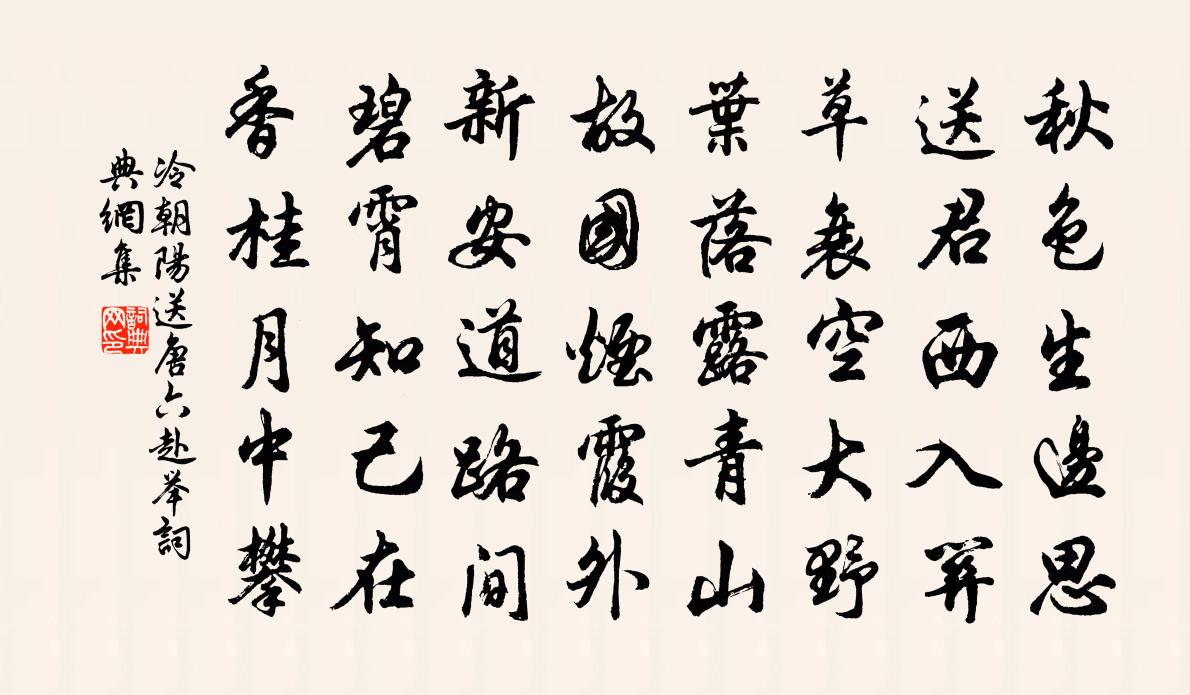 秋色生邊思
送君西入關
草衰空大野
葉落露青山
故國煙霞外
新安道路間
碧霄知己在
香桂月中攀
冷朝陽送唐六赴举詞
典網集
詞典
网印